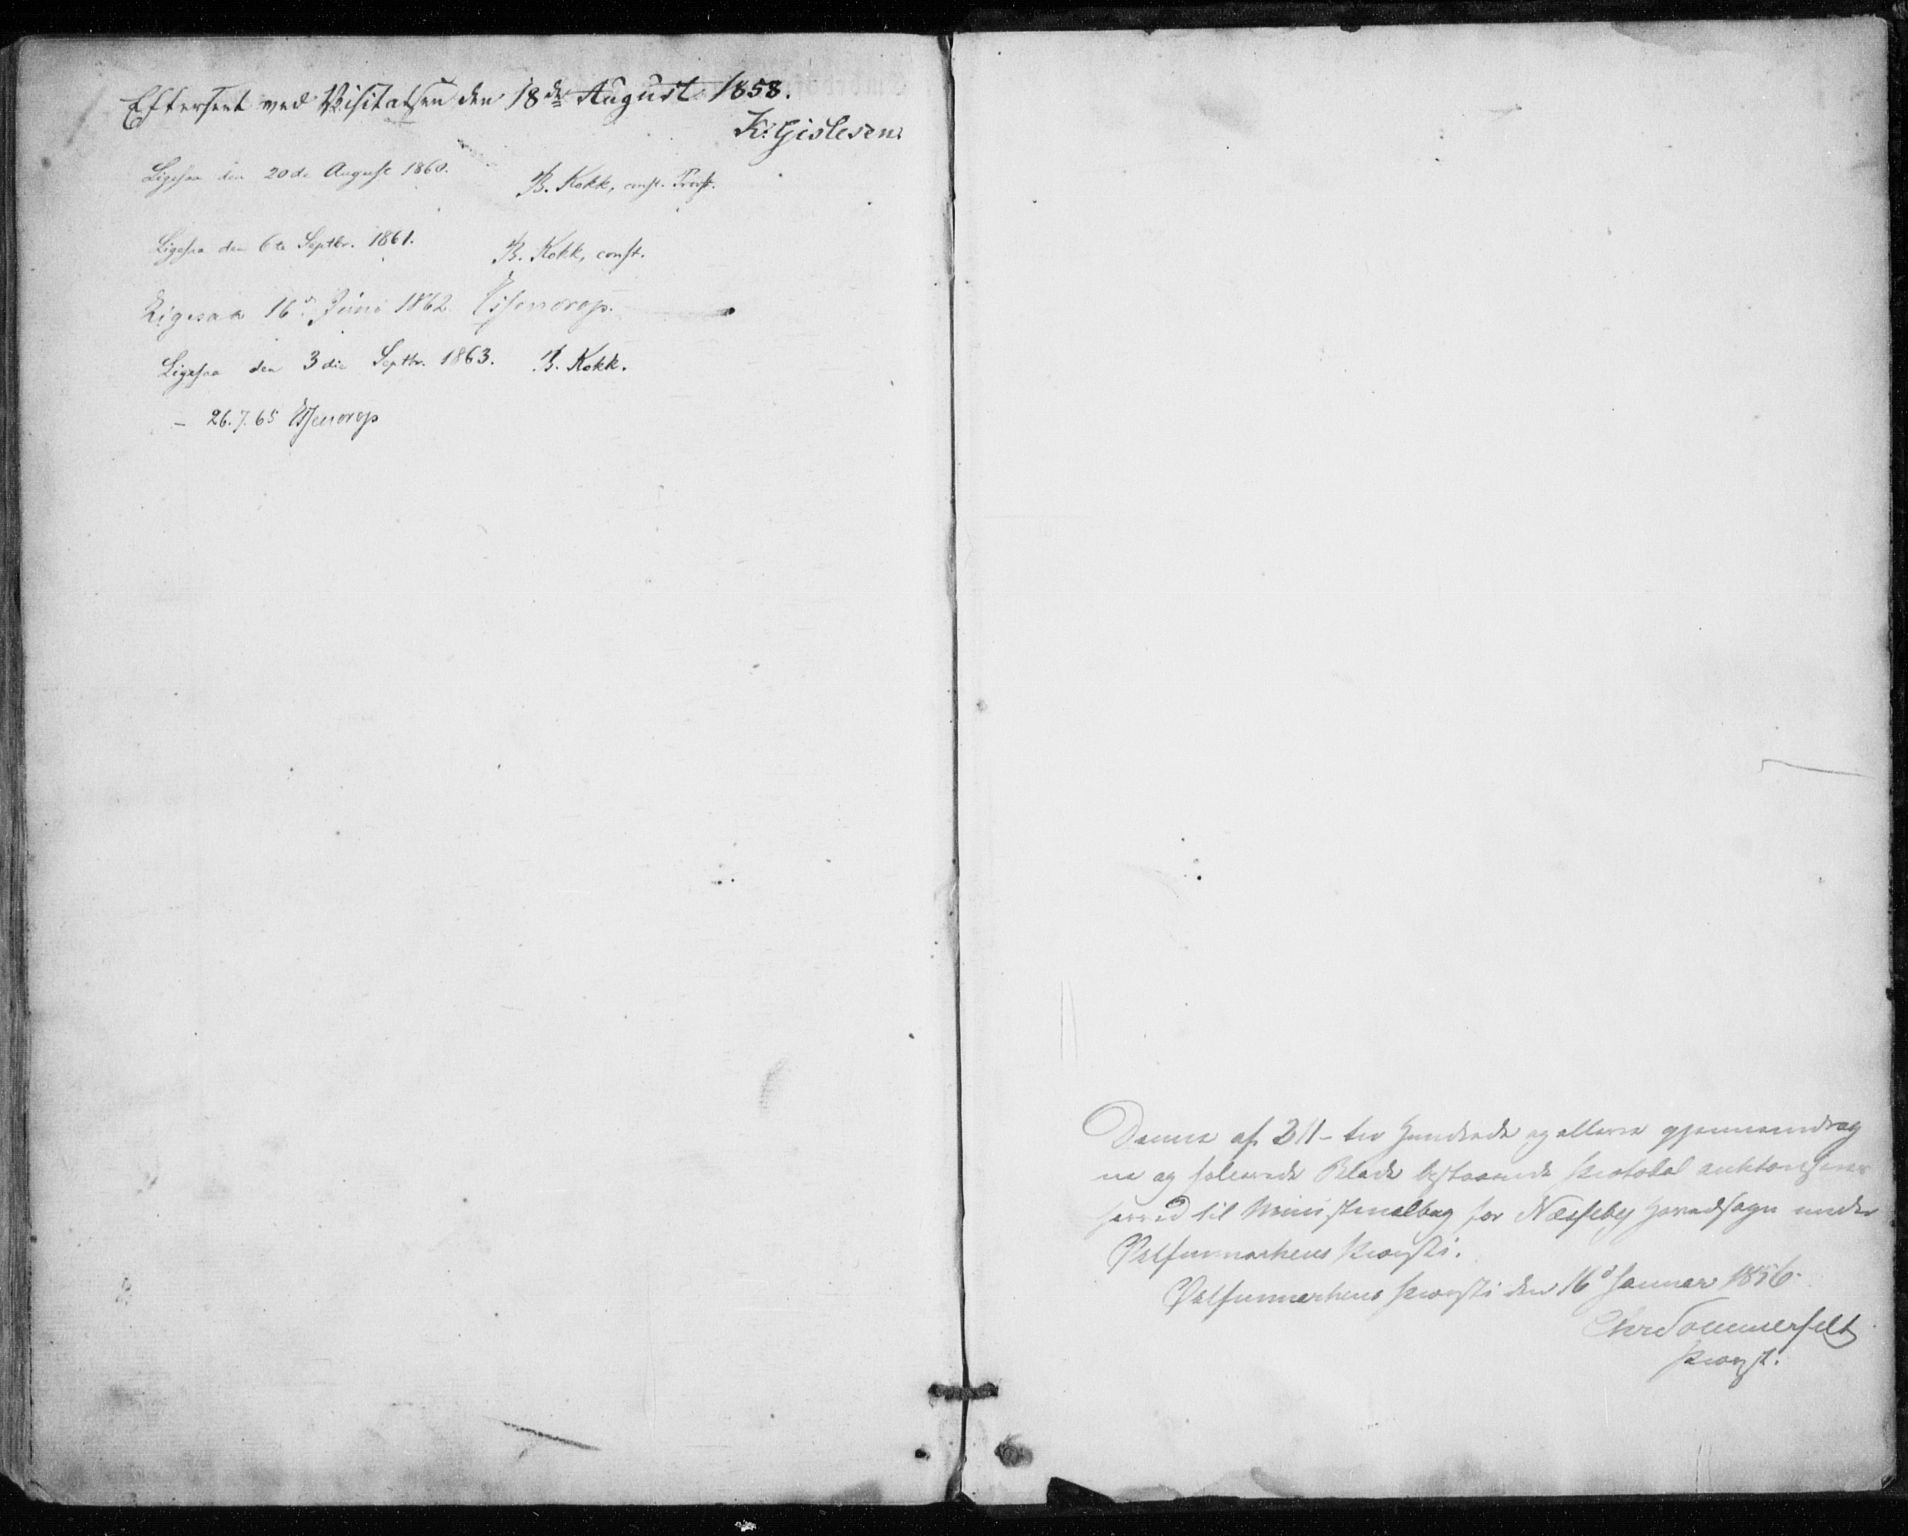 Efterseet ved Visitatsen den 18de August 1858.
K. Gislesen.
Ligesaa den 20de August 1860. B. Kokk, const. Provst.
Ligesaa den 6te Septbr. 1861. B. Kokk, const.
Ligesaa 16d Juni 1862 Essendrop.
Ligesaa den 3die Septbr. 1863. B. Kokk.
– 26.7.65 Essendrop
Denne af 211 – to Hundrede og elleve gjennemdrag
ne og folierede Blade bestaaende Protokol authorise
res til Ministerialbog for Næsseby Hovedsogn under
Østfinmarkens Provsti.
Østfinmarkens Provsti den 16d Januar 1856.
Chr Sommerfelt
Provst.